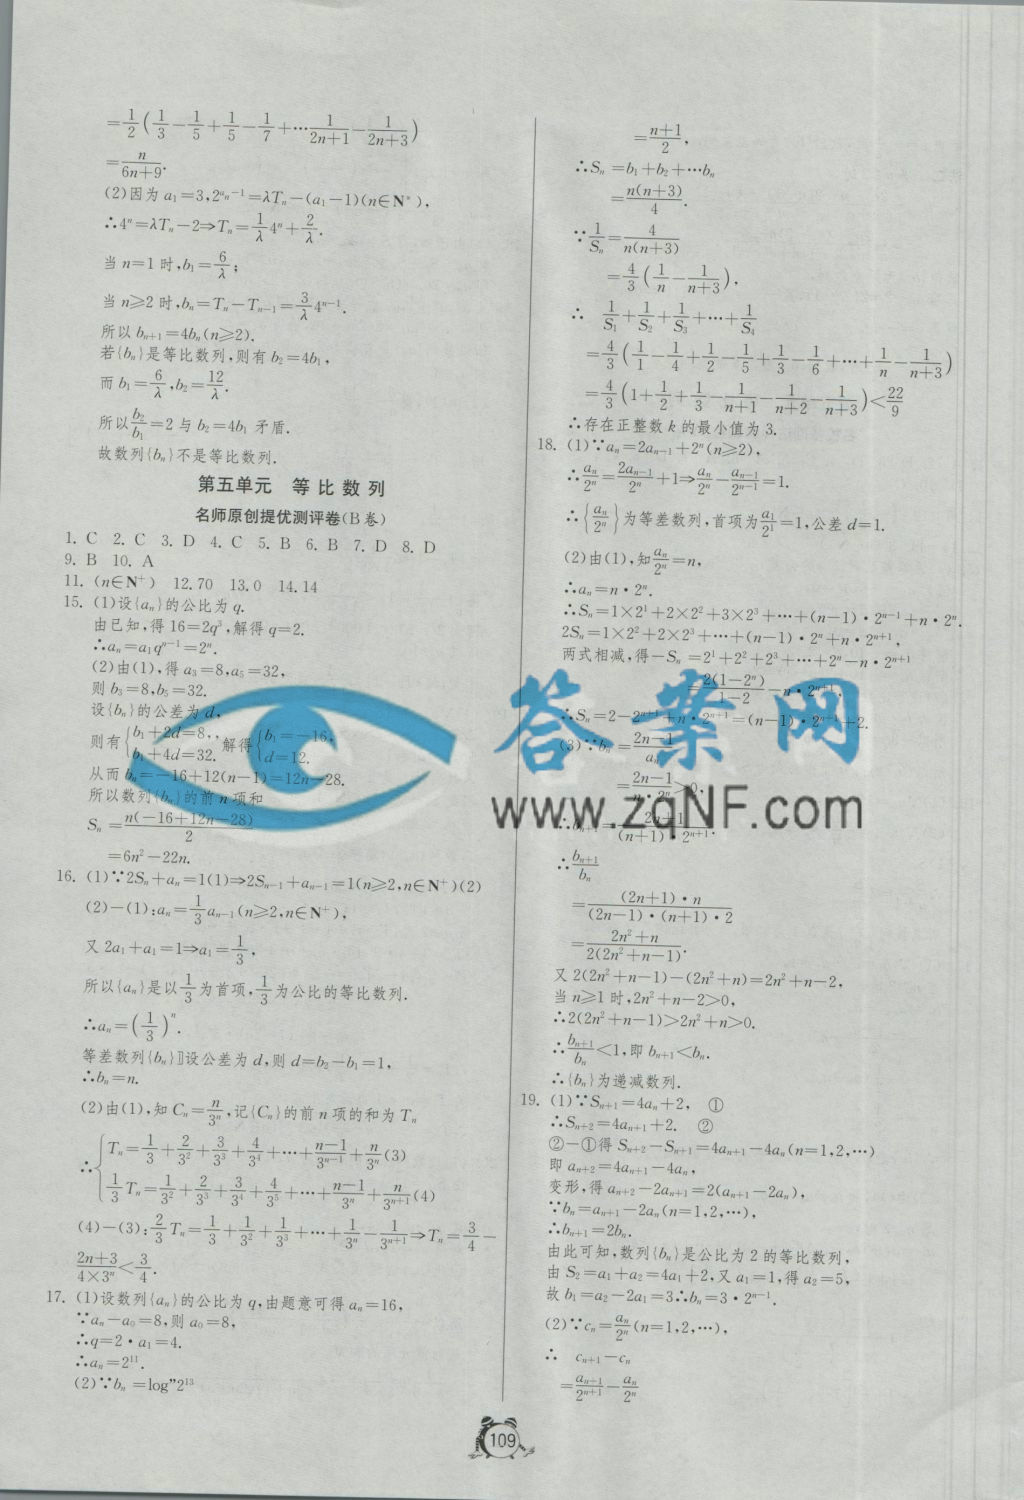 =1/2(1/3-1/5+1/5-1/7+…1/(2n+1)-1/(2n+3))
=n/(6n+9).
(2)因为 a₁=3,2^(aₙ-1)=λTₙ-(a₁-1)(n∈N*),
∴4ⁿ=λTₙ-2⇒Tₙ=1/λ 4ⁿ+2/λ.
当 n=1 时,b₁=6/λ;
当 n≥2 时,bₙ=Tₙ-Tₙ₋₁=3/λ 4ⁿ⁻¹.
所以 bₙ₊₁=4bₙ(n≥2).
若{bₙ}是等比数列,则有 b₂=4b₁,
而 b₁=6/λ,b₂=12/λ.
所以 b₂/b₁=2 与 b₂=4b₁ 矛盾.
故数列{bₙ}不是等比数列.
第五单元 等比数列
名师原创提优测评卷(B卷)
1. C 2. C 3. D 4. C 5. B 6. B 7. D 8. D
9. B 10. A
11. (n∈N⁺) 12. 70 13. 0 14. 14
15. (1)设{aₙ}的公比为 q.
由已知,得 16=2q³,解得 q=2.
∴aₙ=a₁qⁿ⁻¹=2ⁿ.
(2)由(1),得 a₃=8,a₅=32,
则 b₃=8,b₅=32.
设{bₙ}的公差为 d,
则有{b₁+2d=8, b₁+4d=32. 解得{b₁=-16, d=12.
从而 bₙ=-16+12(n-1)=12n-28.
所以数列{bₙ}的前 n 项和
Sₙ=n(-16+12n-28)/2
=6n²-22n.
16. (1)∵2Sₙ+aₙ=1(1)⇒2Sₙ₋₁+aₙ₋₁=1(n≥2,n∈N⁺)(2)
(2)-(1):aₙ=1/3 aₙ₋₁(n≥2,n∈N⁺),
又 2a₁+a₁=1⇒a₁=1/3,
所以{aₙ}是以1/3为首项,1/3为公比的等比数列.
∴aₙ=(1/3)ⁿ.
等差数列{bₙ}]设公差为 d,则 d=b₂-b₁=1,
∴bₙ=n.
(2)由(1),知 Cₙ=n/3ⁿ,记{Cₙ}的前 n 项的和为 Tₙ
∴{Tₙ=1/3+2/3²+3/3³+4/3⁴+…+(n-1)/3ⁿ⁻¹+n/3ⁿ(3)
1/3 Tₙ=1/3²+2/3³+3/3⁴+4/3⁵+…+(n-1)/3ⁿ+n/3ⁿ⁺¹(4)
(4)-(3):2/3 Tₙ=1/3+1/3²+1/3³+…+1/3ⁿ-1/3ⁿ⁺¹⇒Tₙ=3/4-
(2n+3)/(4×3ⁿ)<3/4.
17. (1)设数列{aₙ}的公比为 q,由题意可得 aₙ=16,
∵aₙ-a₀=8,则 a₀=8,
∴q=2·a₁=4.
∴aₙ=2¹¹.
(2)∵bₙ=log"2¹³
=(n+1)/2,
∴Sₙ=b₁+b₂+…bₙ
=n(n+3)/4.
∵1/Sₙ=4/(n(n+3))
=4/3(1/n-1/(n+3)),
∴ 1/S₁+1/S₂+1/S₃+…+1/S₄
=4/3(1/1-1/4+1/2-1/5+1/3-1/6+…+1/n-1/(n+3))
=4/3(1+1/2+1/3-1/(n+1)-1/(n+2)-1/(n+3))<22/9
∴存在正整数 k 的最小值为 3.
18. (1)∵aₙ=2aₙ₋₁+2ⁿ(n≥2),
∴aₙ/2ⁿ=2aₙ₋₁/2ⁿ+1⇒aₙ/2ⁿ-aₙ₋₁/2ⁿ⁻¹=1.
∴{aₙ/2ⁿ}为等差数列,首项为a₁/2¹=1,公差 d=1.
(2)由(1),知aₙ/2ⁿ=n,
∴aₙ=n·2ⁿ.
∴Sₙ=1×2¹+2×2²+3×2³+…+(n-1)·2ⁿ⁻¹+n·2ⁿ.
2Sₙ=1×2²+2×2³+…+(n-1)·2ⁿ+n·2ⁿ⁺¹,
两式相减,得-Sₙ=2¹+2²+2³+…+2ⁿ-n·2ⁿ⁺¹
=2(1-2ⁿ)/(1-2)-n·2ⁿ⁺¹,
∴Sₙ=2-2ⁿ⁺¹+n·2ⁿ⁺¹=(n-1)·2ⁿ⁺¹+2.
(3)∵bₙ=(2n-1)/aₙ
=(2n-1)/(n·2ⁿ)>0,
∴bₙ₊₁=(2n+1)/((n+1)·2ⁿ⁺¹).
∴bₙ₊₁/bₙ
=(2n+1)·n/((2n-1)·(n+1)·2)
=(2n²+n)/(2(2n²+n-1)).
又 2(2n²+n-1)-(2n²+n)=2n²+n-2,
当 n≥1 时,2n²+n-2>0,
∴2(2n²+n-1)>2n²+n>0.
∴bₙ₊₁/bₙ<1,即 bₙ₊₁<bₙ.
∴{bₙ}为递减数列.
19. (1)∵Sₙ₊₁=4aₙ+2, ①
∴Sₙ₊₂=4aₙ₊₁+2. ②
②-①得 Sₙ₊₂-Sₙ₊₁=4aₙ₊₁-4aₙ(n=1,2,…)
即 aₙ₊₂=4aₙ₊₁-4aₙ,
变形,得 aₙ₊₂-2aₙ₊₁=2(aₙ₊₁-2aₙ),
∵bₙ=aₙ₊₁-2aₙ(n=1,2,…),
∴bₙ₊₁=2bₙ.
由此可知,数列{bₙ}是公比为 2 的等比数列,
由 S₂=a₁+a₂=4a₁+2,又 a₁=1,得 a₂=5,
故 b₁=a₂-2a₁=3∴bₙ=3·2ⁿ⁻¹.
(2)∵cₙ=aₙ/2ⁿ(n=1,2,…),
∴ cₙ₊₁-cₙ
=aₙ₊₁/2ⁿ⁺¹-aₙ/2ⁿ
答案网
www.zqNF.com
109